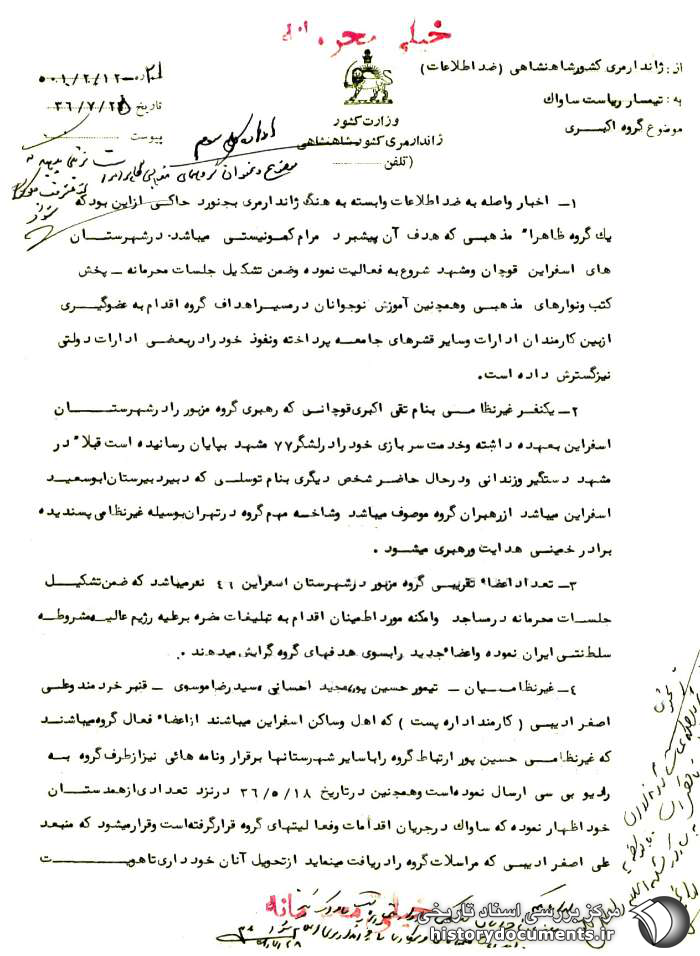 خیلی محرمانه
از : ژاندارمری کشور شاهنشاهی (ضد اطلاعات)
به : تیمسار ریاست ساواک
موضوع گروه اکبری
وزارت کشور
ژاندارمری کشور شاهنشاهی
(تلفن
تاریخ
پیوست
اداره کل سوم
۱- اخبار واصله به ضد اطلاعات وابسته به هنگ ژاندارمری بجنورد حاکی ازاین بود که
یک گروه ظاهراً مذهبی که هدف آن پیشبرد مرام کمونیستی میباشد. درشهرستان
های اسفراین قوچان ومشهد شروع به فعالیت نموده وضمن تشکیل جلسات محرمانه - پخش
کتب ونوارهای مذهبی وهمچنین آموزش نوجوانان درمسیر اهداف گروه اقدام به عضوگیری
ازبین کارمندان ادارات وسایر قشرهای جامعه پرداخته ونفوذ خود رادربعضی ادارات دولتی
نیزگسترش داده است.
۲- یکنفر غیرنظامی بنام تقی اکبری قوچانی که رهبری گروه مزبور رادرشهرستان
اسفراین بعهده داشته وخدمت سربازی خود رادرلشگر۷۷ مشهد بپایان رسانیده است قبلاً در
مشهد دستگیر وزندانی ودرحال حاضر شخص دیگری بنام توسلی که دبیر دبیرستان ابوسعید
اسفراین میباشد ازرهبران گروه موصوف میباشد وشاخسه مهم گروه درتهران بوسیله غیرنظامی پسندیده
برادر خمینی هدایت ورهبری میشود .
۳- تعداد اعضاء تقریبی گروه مزبور درشهرستان اسفراین ۴۶ نفرمیباشد که ضمن تشکیل
جلسات محرمانه درمساجد وامکنه مورد اطمینان اقدام به تبلیغات مضره برعلیه رژیم عالیه مشروطه
سلطنتی ایران نموده واعضاء جدید رابسوی هدفهای گروه گرایش میدهند .
۴- غیرنظامیان - تیمور حسین پور، مجید احسانی ، سید رضا موسوی - قنبر خردمند وعلی
اصغر ادیبی ( کارمند اداره پست ) که اهل وساکن اسفراین میباشند ازاعضاء فعال گروه میباشند
که غیرنظامی حسین پور ارتباط گروه راباسایر شهرستانها برقرار ونامه هائی نیزازطرف گروه به
رادیو بی سی ارسال نموده است وهمچنین درتاریخ ۳۶/۵/۱۸ درنزد تعدادی ازهمدستان
خود اظهار نموده که ساواک درجریان اقدامات وفعالیتهای گروه قرارگرفته است وقرارمیشود که منبعد
علی اصغر ادیبی که مراسلات گروه رادریافت مینماید ازتحویل آنان خودداری تاهویت
خیلی محرمانه
مرکز بررسی اسناد تاریخی
historydocuments.ir